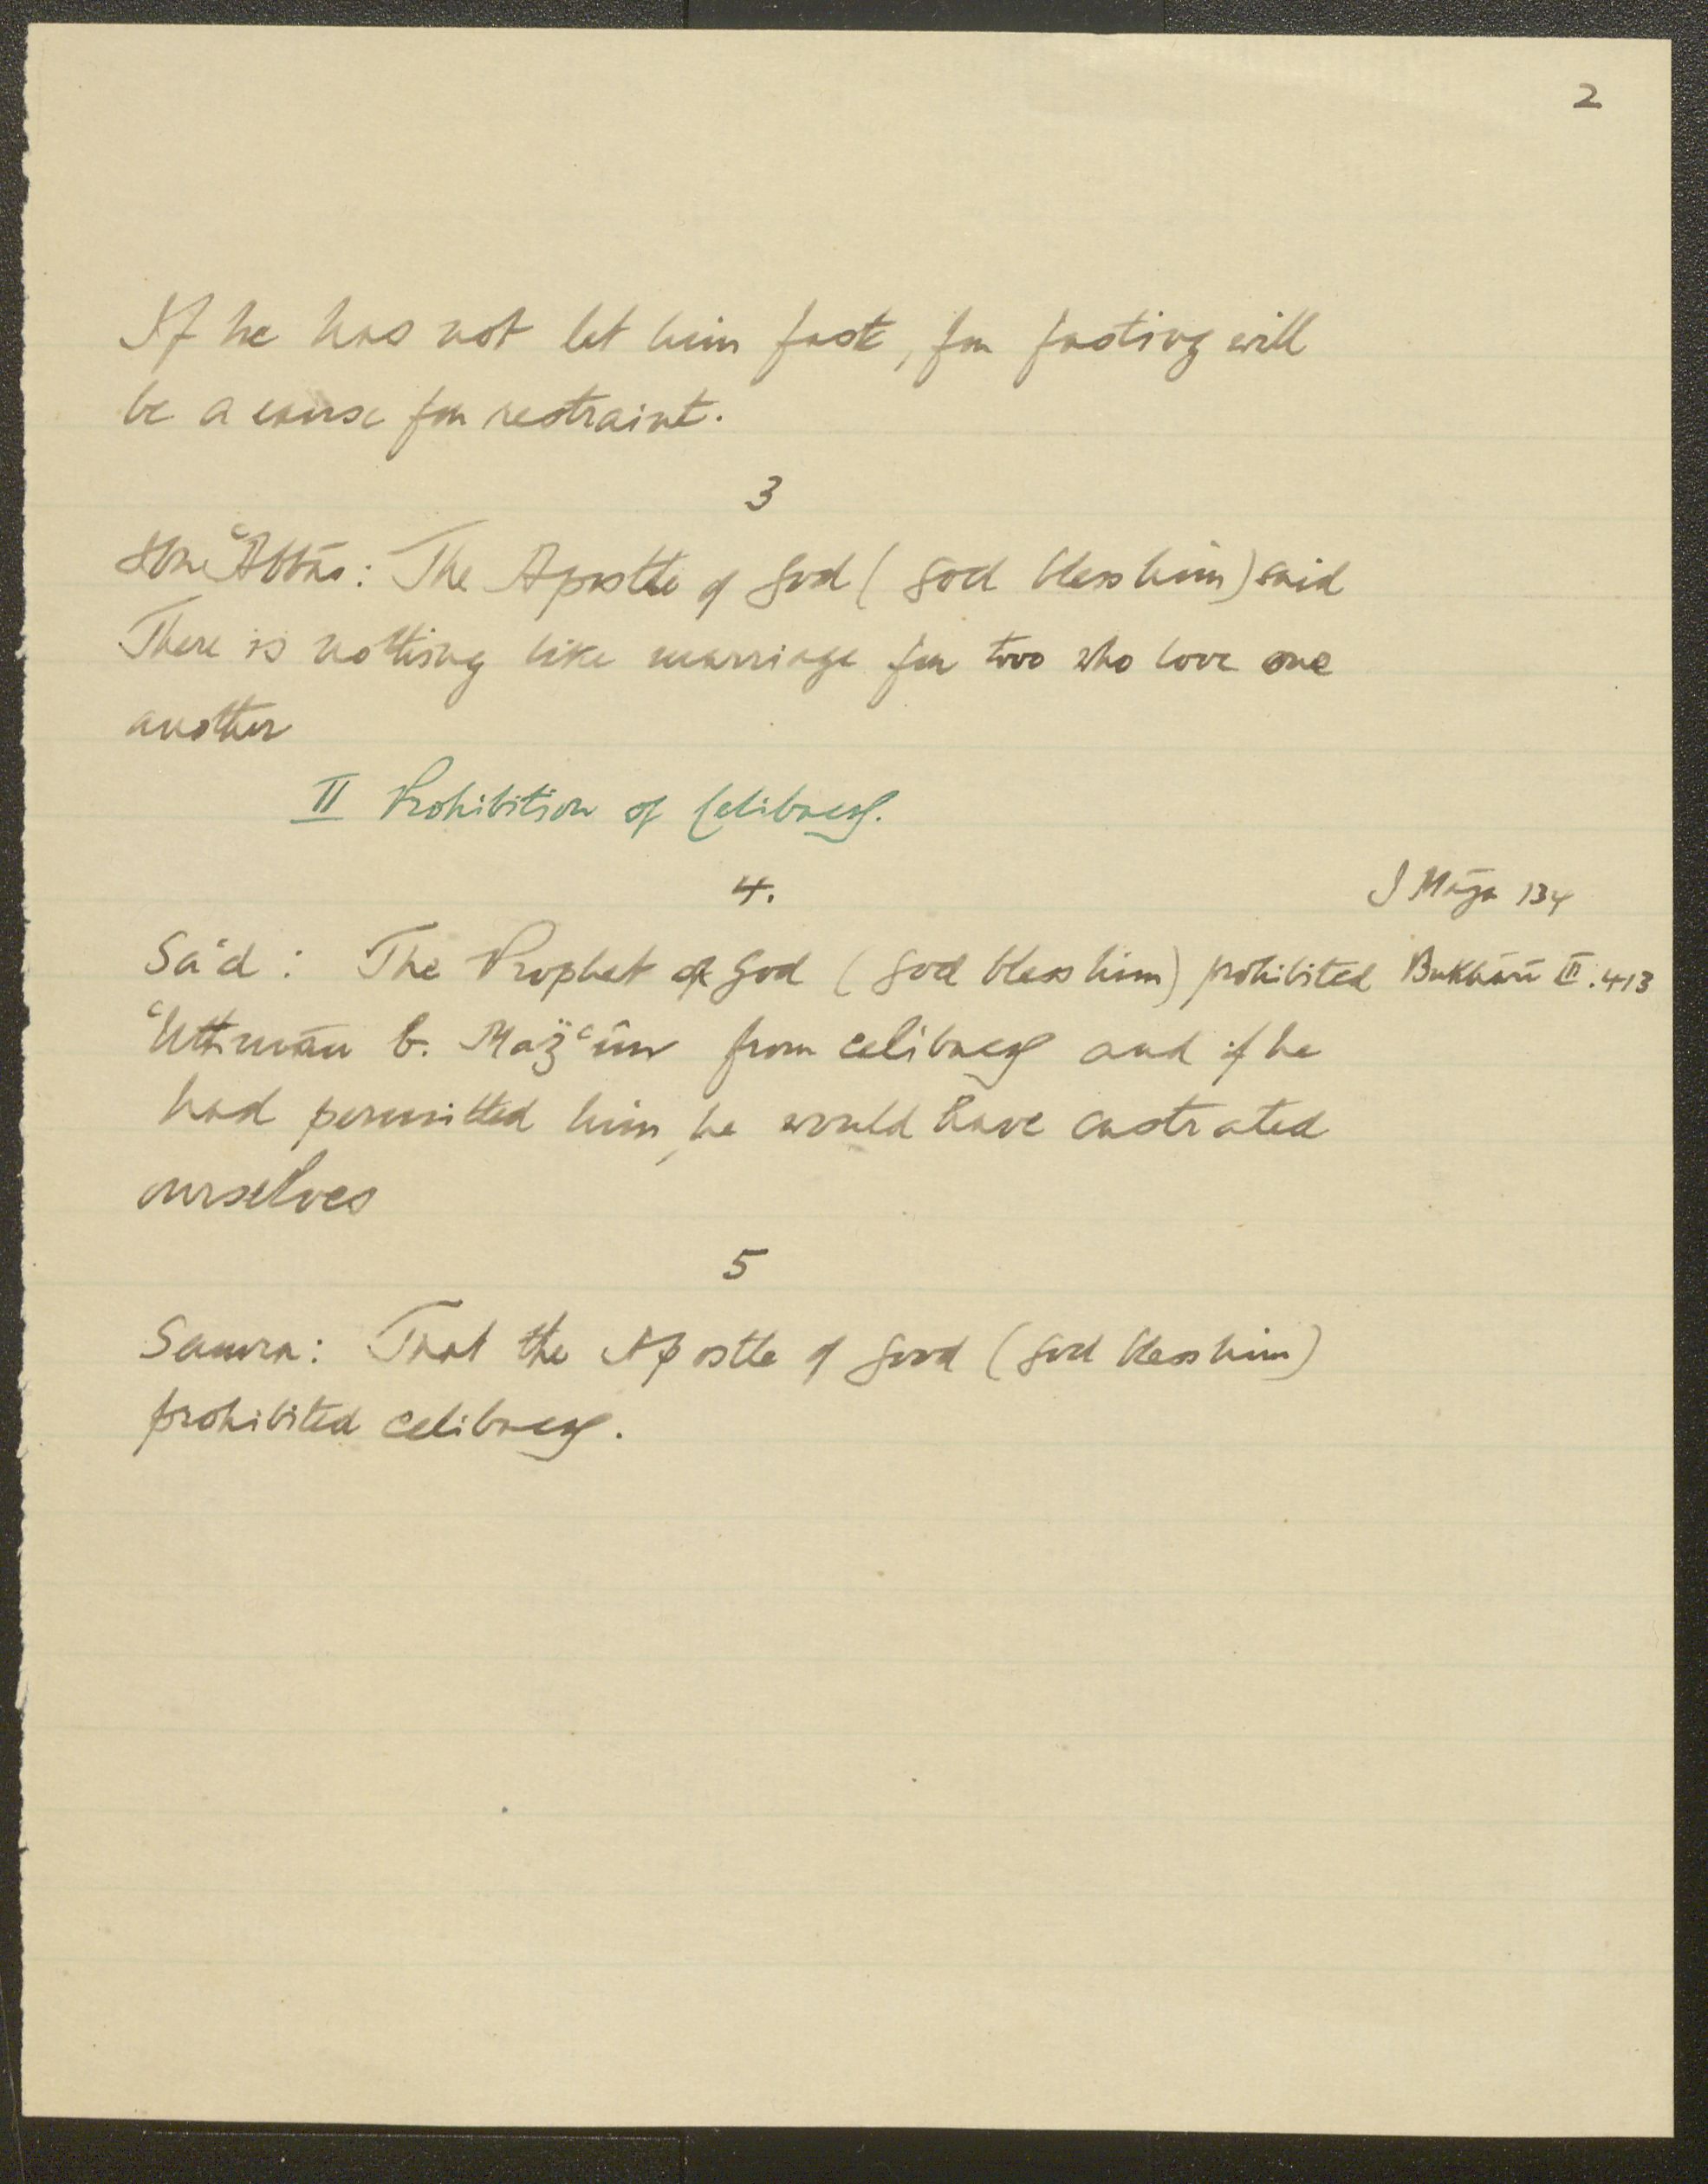 2
If he has not let him fast, for fasting will
be a cause for restraint.
3
Ibn ʿAbbās: The Apostle of God (God bless him) said
There is nothing like marriage for two who love one
another
II Prohibition of Celibacy.
4.
I Māja 134
Saʿd: The Prophet of God (God bless him) prohibited Bukhārī III.413
ʿUthmān b. Maẓʿūn from celibacy and if he
had permitted him, he would have castrated
ourselves
5
Samra: That the Apostle of God (God bless him)
prohibited celibacy.